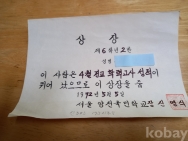 상 장
제 6 학년 2 반
성명
이 사람은 4월 전교 학력고사 성적이
뛰어 났으므로 이 상장을 줌
1992년 5월 5일
서울
국민학교장
kobay